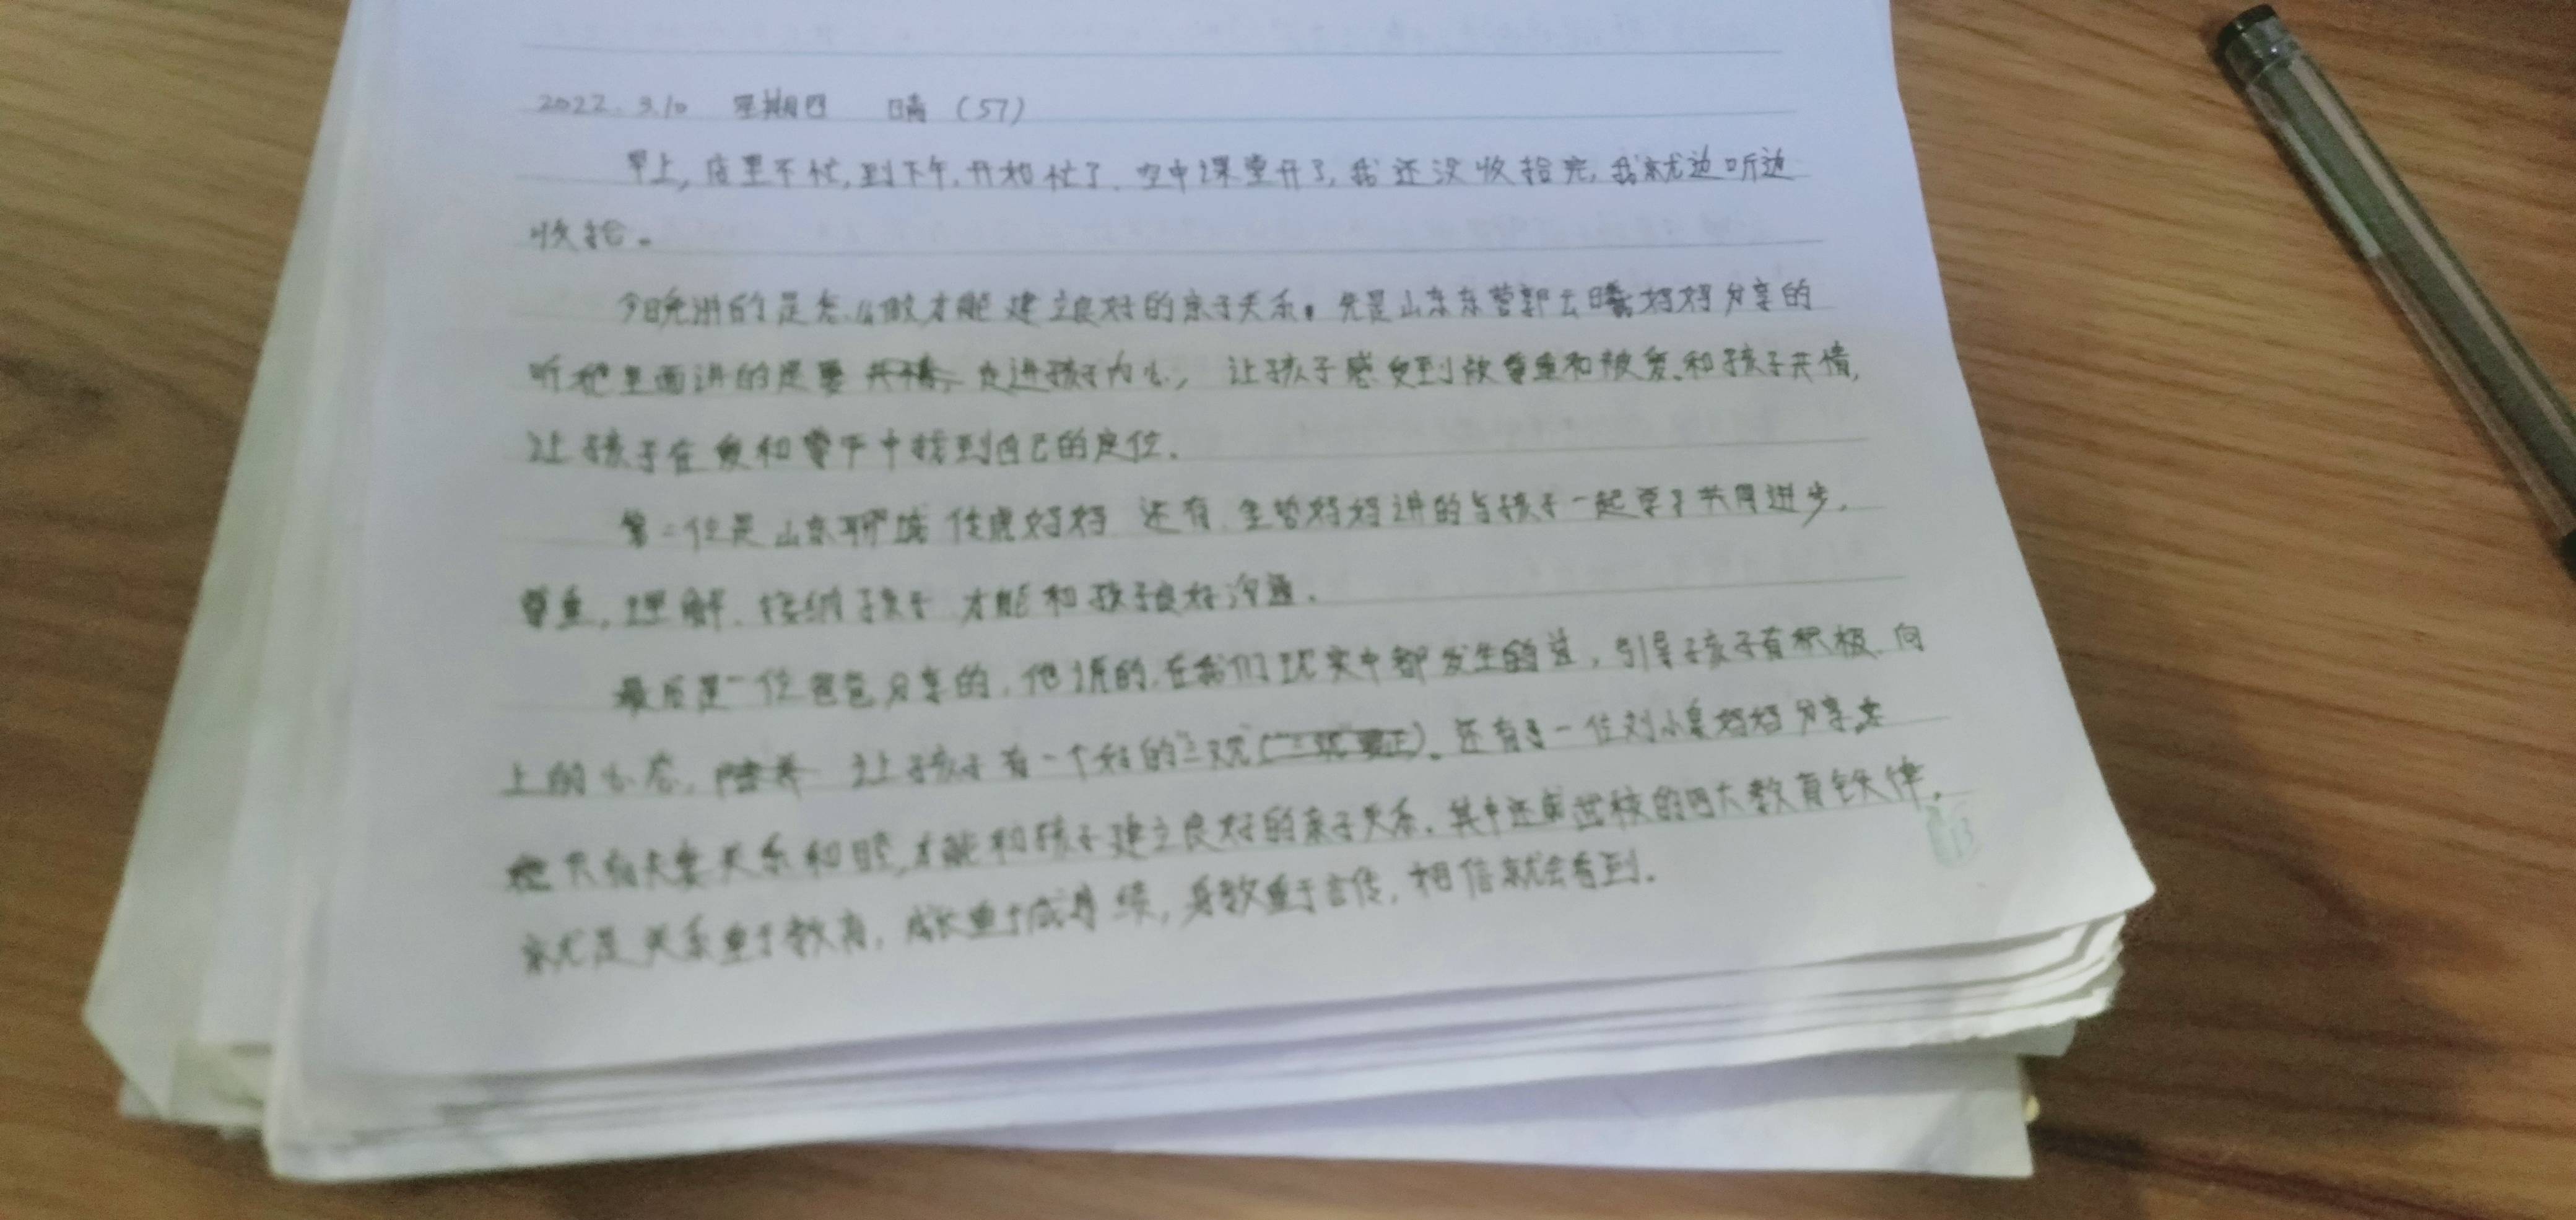 2022.3.10 星期四 晴 (57)
早上,店里不忙,到下午,开始忙了.空中课堂开了,我还没收拾完,我就边听边
收拾。
今晚讲的是怎么做才能建立良好的亲子关系。先是山东东营郭云曦妈妈分享的
听她里面讲的是要 走进孩子内心, 让孩子感受到被尊重和被爱.和孩子共情,
让孩子在爱和 中找到自己的定位.
第二位是山东聊城 妈妈 还有 妈妈讲的与孩子一起学习共同进步.
尊重,理解.接纳孩子 才能和孩子良好沟通.
最后是一位爸爸分享的.他讲的.在我们现实中都发生的过,引导孩子有积极.向
上的心态. 让孩子有一个好的"三观 .还有一位刘小 妈妈分享
她 只有夫妻关系和睦,才能和孩子建立良好的亲子关系.其中还 的四大教育铁律.
就是关系重于教育,成长重于成 绩,身教重于言传,相信就会看到.